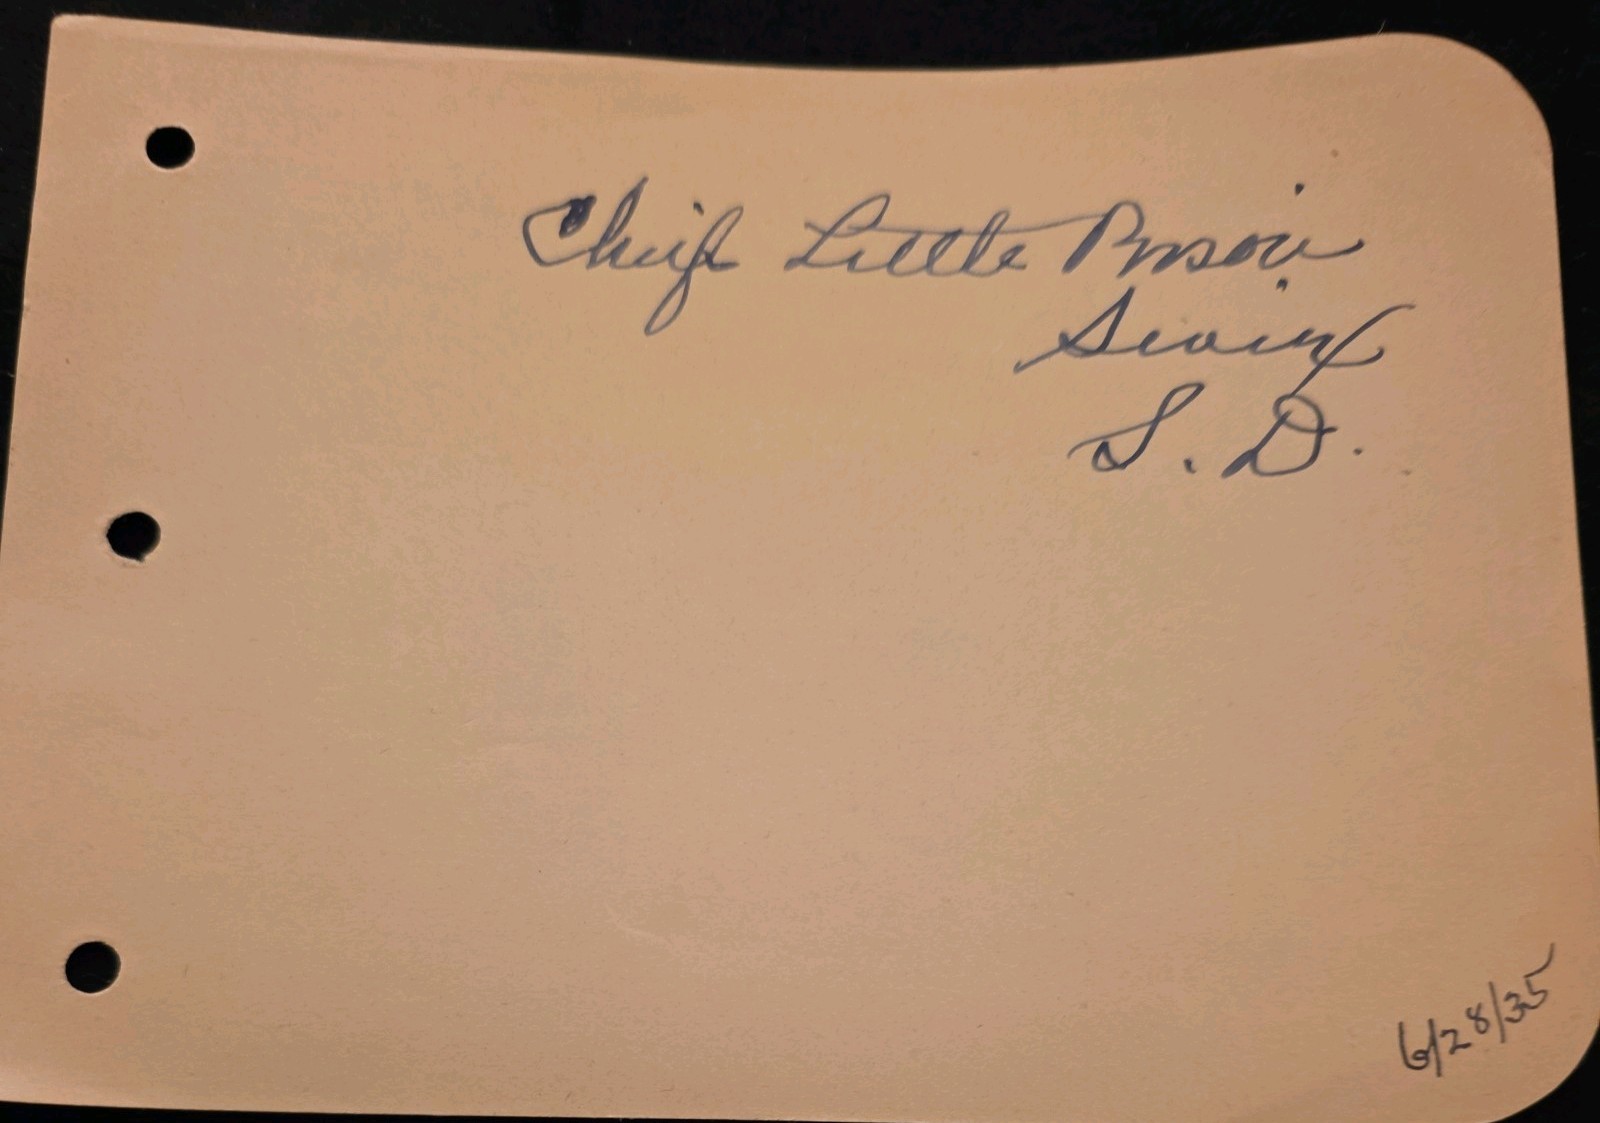 Chief Little Bison
Sioux
S. D.
6/28/35